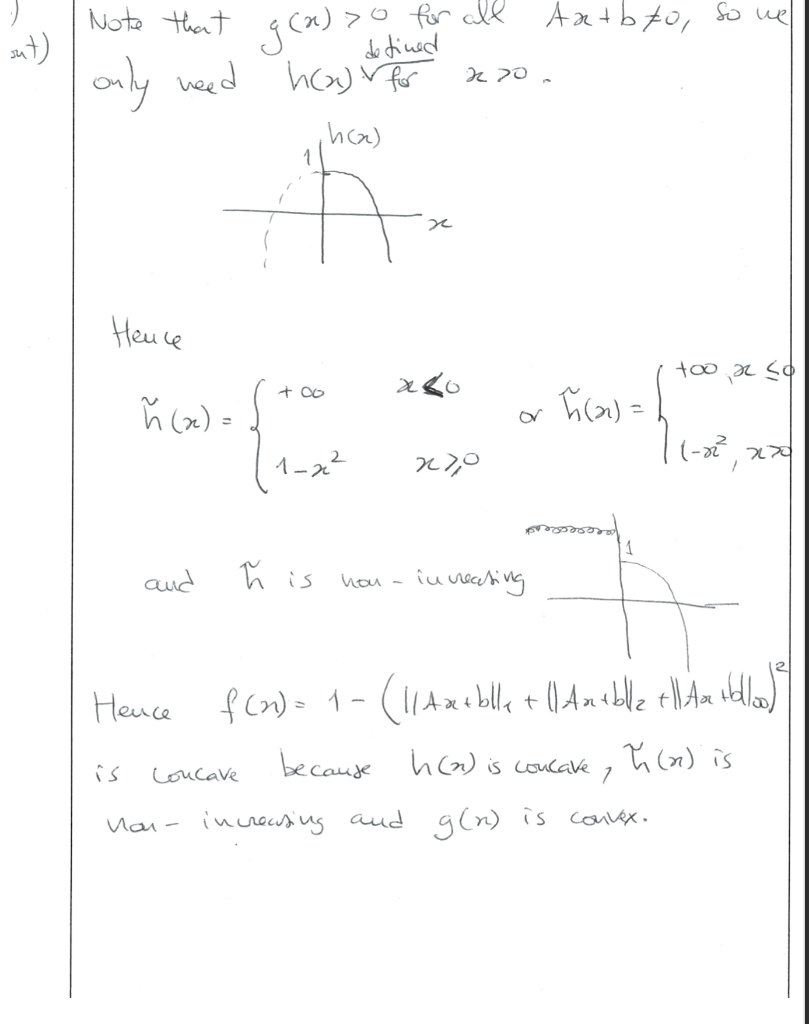 )
Note that g(x) > 0 for all Ax + b ≠ 0, so we
ont)
defined
only need h(x) √ for x > 0.
h(x)
1
x
Hence
h̃(x) = { +∞ x ≤ 0 or h̃(x) = { +∞, x ≤ 0
1 - x² x ≥ 0 1 - x², x > 0
1
and h̃ is non-increasing
Hence f(x) = 1 - (||Ax+b||₁ + ||Ax+b||₂ + ||Ax+b||∞)²
is concave because h(x) is concave, h̃(x) is
non-increasing and g(x) is convex.